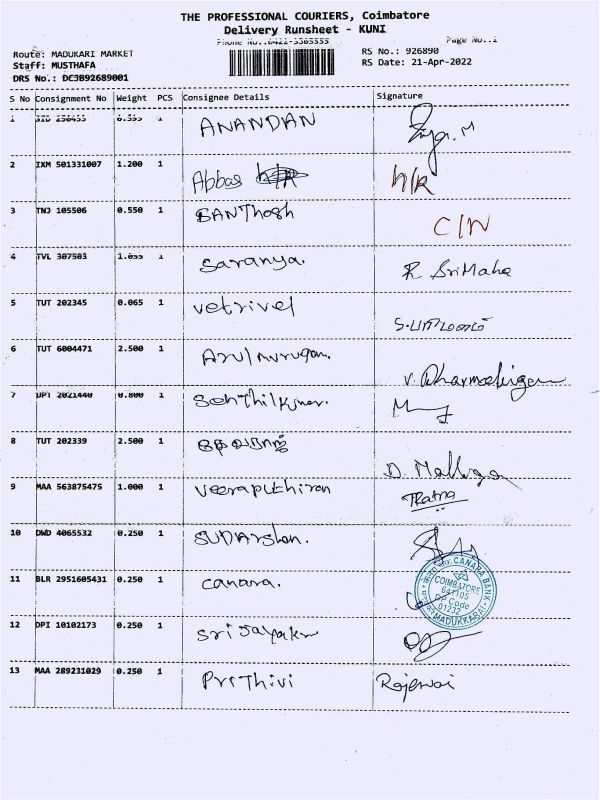 THE PROFESSIONAL COURIERS, Coimbatore
Delivery Runsheet - KUNI
Phone No.:0422-3305555 Page No.:1
Route: MADUKARI MARKET RS No.: 926890
Staff: MUSTHAFA RS Date: 21-Apr-2022
DRS No.: DCJB92689001
S No Consignment No Weight PCS Consignee Details Signature
1 1 ANANDAN
2 IXM 501331007 1.200 1 Abbas H/R
3 TNJ 105506 0.550 1 SANThosh C/N
4 TVL 307503 1.055 1 Saranya. R SriMaha
5 TUT 202345 0.065 1 vetrivel
6 TUT 6004471 2.500 1 Arulmurugan.
7 UPI 2021440 0.800 1 Senthilkumar.
8 TUT 202339 2.500 1 தேவராஜ் D. Malliga
9 MAA 563875475 1.000 1 veeraputhiran Ratna
10 DWD 4065532 0.250 1 SUDArshan.
11 BLR 2951605431 0.250 1 canara.
CANARA BANK
COIMBATORE
641105
DP Code
01232
MADUKKARAI
12 DPI 10102173 0.250 1
13 MAA 289231029 0.250 1 Prithivi